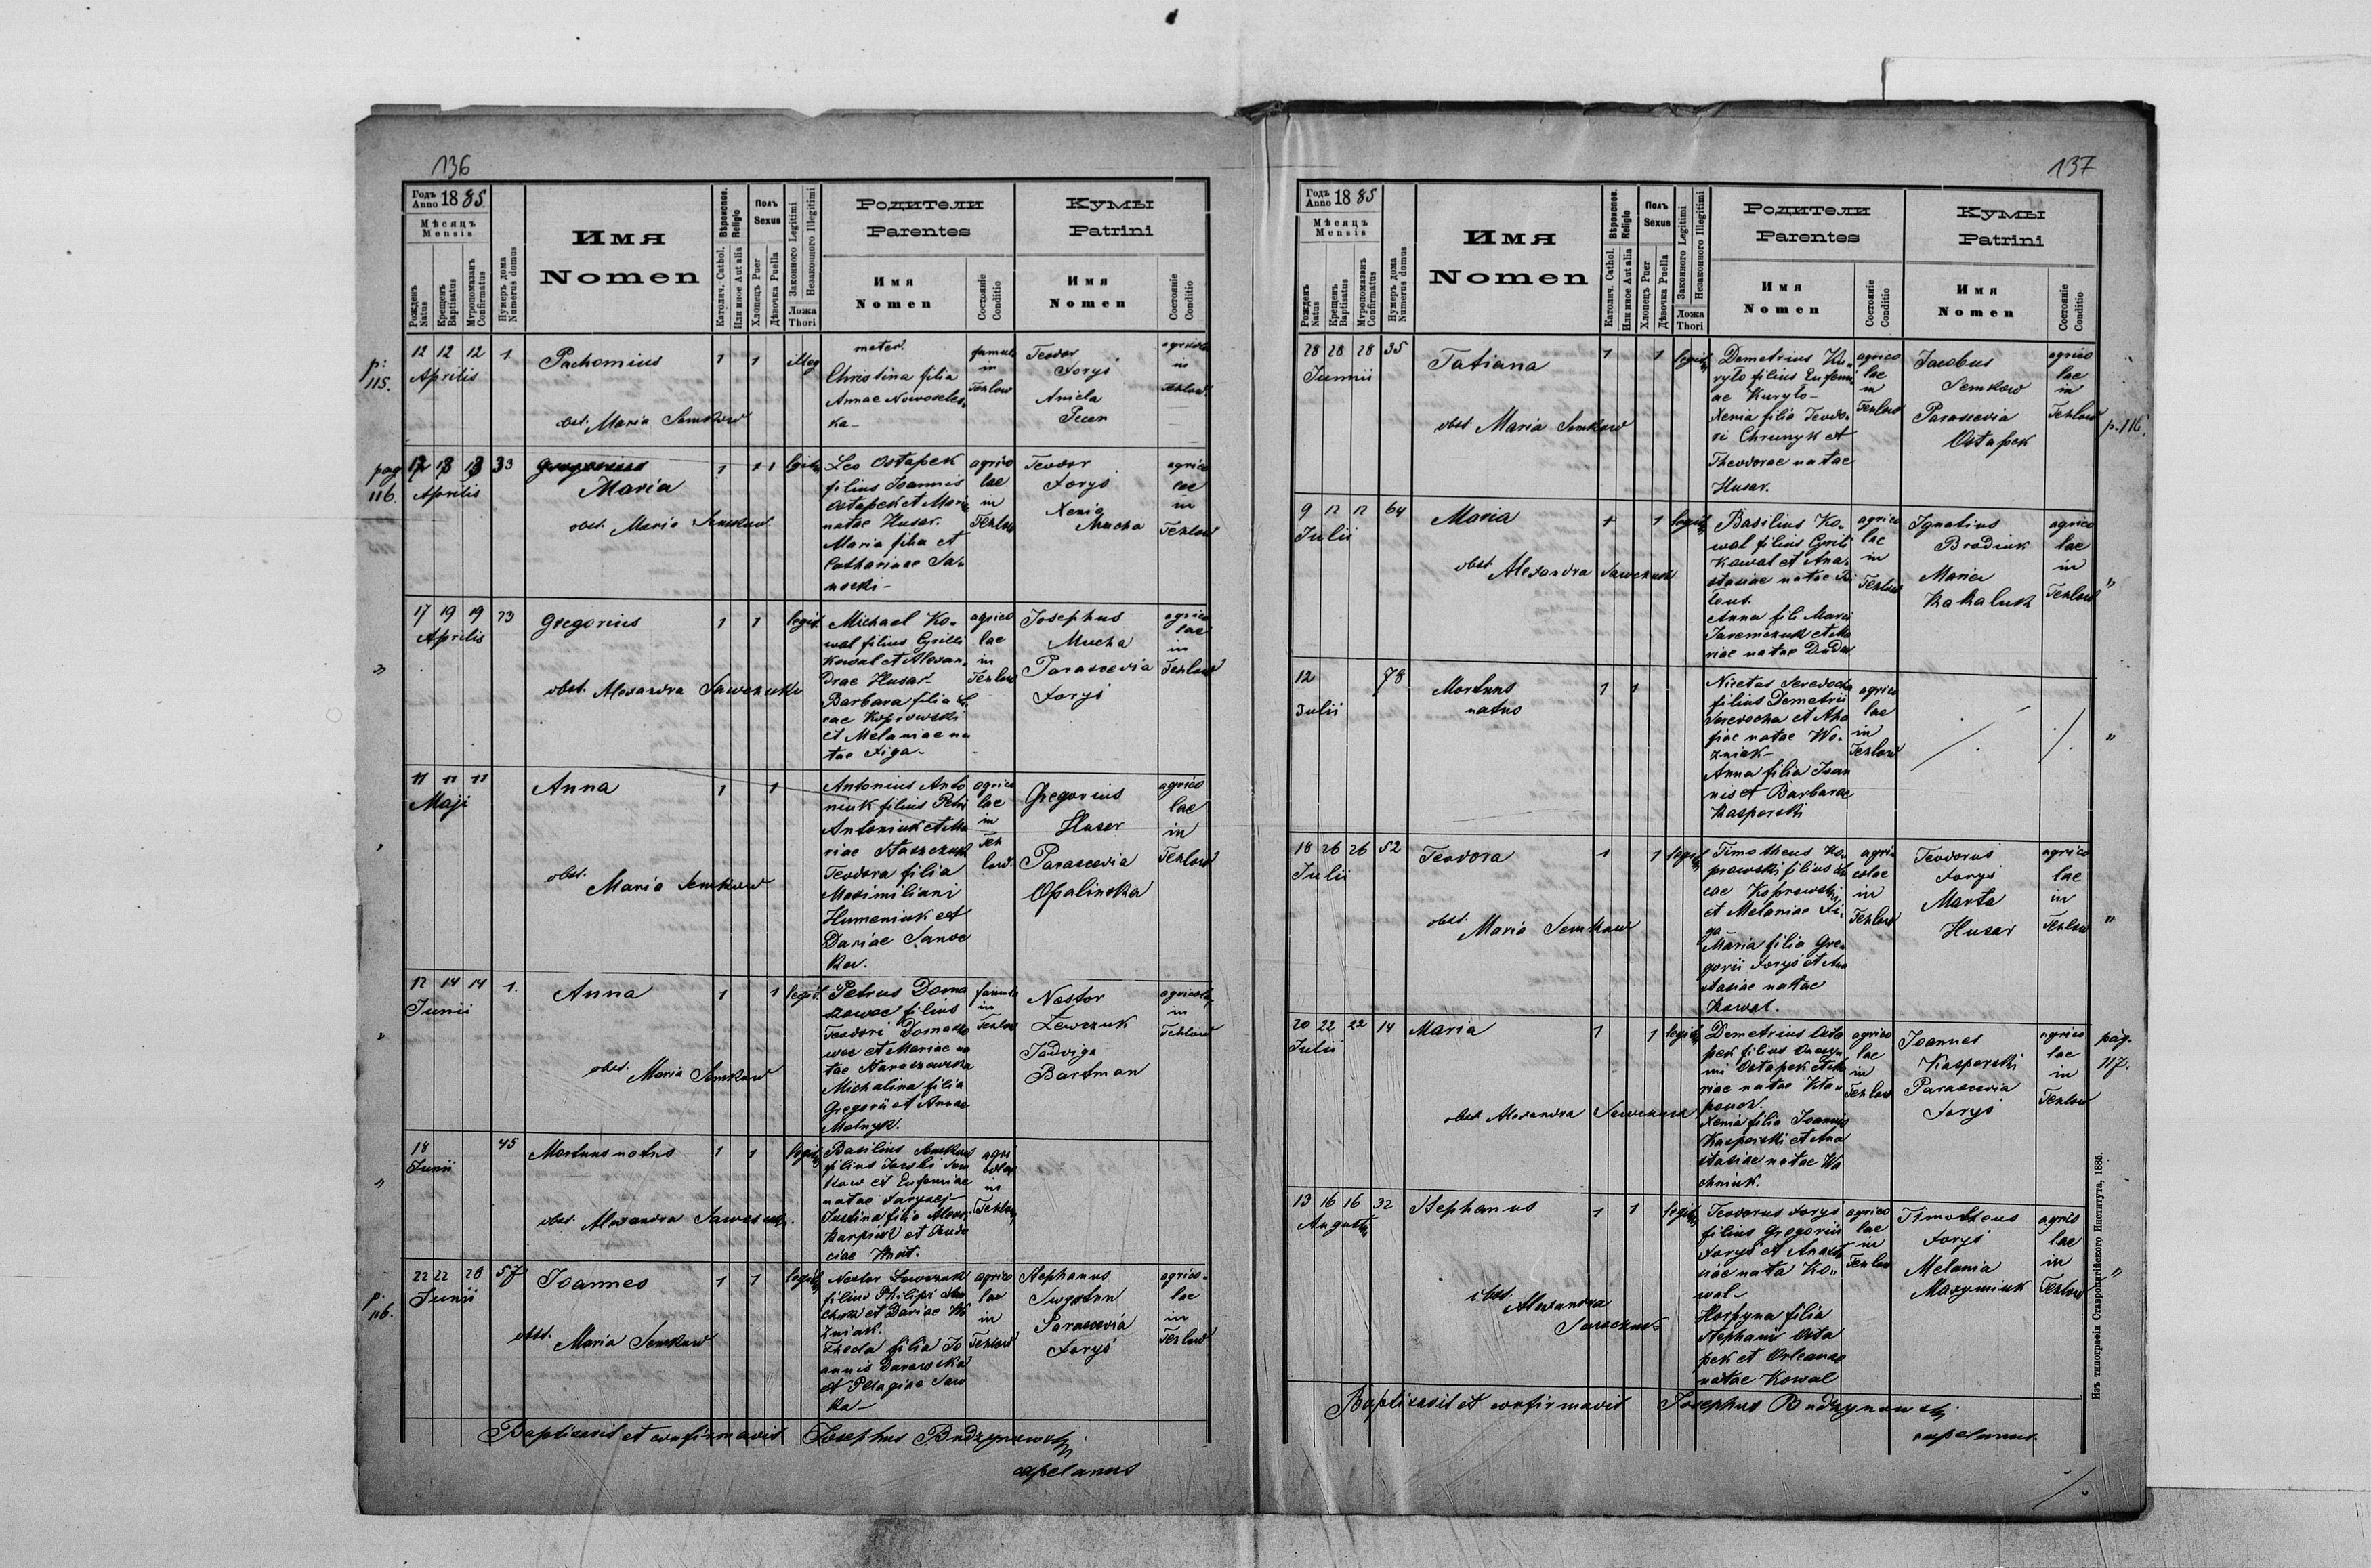 136
Годъ Anno 1885.
Мѣсяцъ
Mensis
Рожденъ Natus
Крещенъ Baptisatus
Мѵропомазанъ Confirmatus
Нумеръ дома Numerus domus
Имя
Nomen
Вѣроисповѣд. Religio
Католич. Cathol.
Или иное Aut alia
Полъ
Sexus
Хлопецъ Puer
Дѣвочка Puella
Законного Legitimi
Незаконного Illegitimi
Ложа
Thori
Родители
Parentes
Имя
Nomen
Состояніе
Conditio
Кумы
Patrini
Имя
Nomen
Состояніе
Conditio
p: 115.
12 12 12 1
Aprilis
Pachomius
1 1 illeg
obst. Maria Semkow
mater.
Christina filia
Annae Nowosels-
ka-
famula
in
Tehlow
Teodor
Forys
Aniela
Pecen
agricolae
in
Tehlow
pag 116.
13 13 33
Aprilis
Maria
1 1 legit.
obst. Maria Semkow
Leo Ostapek
filius Joannis
Ostapek et Mariae
natae Husar.
Maria filia et
Catharinae Sa-
nocki-
agrico
lae
in
Tehlow
Teodor
Forys
Xenia
Mucha
agrico
lae
in
Tehlow
"
17 19 19 23
Aprilis
Gregorius
1 1 legit.
obst. Alexandra Sawczuk
Michael Ko-
wal filius Cyrilli
Kowal et Alexan-
drae Husar-
Barbara filia Lu
cae Koprowski
et Melaniae na
tae Figa-
agrico
lae
in
Tehlow
Josephus
Mucha
Parascevia
Forys
agrico
lae
in
Tehlow
11 11 11
Maji
Anna
1 1
obst.
Maria Semkow
Antonius Anto
niuk filius Petri
Antoniuk et Ma
riae Staszczuk
Teodora filia
Maximiliani
Humeniuk et
Dariae Sanoc
ka.
agrico
lae
in
Teh
low.
Gregorius
Husar
Parascevia
Opalinska
agrico
lae
in
Tehlow
"
12 14 14 1.
Junii
Anna
1 1 legit.
obst.
Maria Semkow
Petrus Doma
szowec filius
Teodori Domaszo
wec et Mariae na
tae Haraszowska
Michalina filia
Gregorii et Annae
Melnyk.
famula
in
Tehlow
Nestor
Lewczuk
Jadviga
Bartman
agricolae
in
Tehlow
"
18 45
Junii
Mortuus natus
1 1 legit.
obst. Alexandra Sawczuk.
Basilius Semkow
filius Jacobi Sem
kow et Eufemiae
natae
Justina filia
et
agri
colae
in
Tehlow
p. 116.
22 22 28 57
Junii
Joannes
1 1 legit.
obst.
Maria Semkow
Nestor Lewczuk
filius Philipi
et Dariae Wo
zniak.
Thecla filia Jo
annis Darowska
et Pelagiae Saw
ka-
agrico
lae
in
Tehlow
Stephanus
Parascevia
Forys
agrico-
lae
in
Tehlow
Baptisavit et confirmavit Josephus Budzynowski
capelanus
137
Годъ Anno 1885
Мѣсяцъ
Mensis
Рожденъ Natus
Крещенъ Baptisatus
Мѵропомазанъ Confirmatus
Нумеръ дома Numerus domus
Имя
Nomen
Вѣроисповѣд. Religio
Католич. Cathol.
Или иное Aut alia
Полъ
Sexus
Хлопецъ Puer
Дѣвочка Puella
Законного Legitimi
Незаконного Illegitimi
Ложа
Thori
Родители
Parentes
Имя
Nomen
Состояніе
Conditio
Кумы
Patrini
Имя
Nomen
Состояніе
Conditio
28 28 28 35
Junnii
Tatiana
1 1 legit.
obst. Maria Semkow
Demetrius Ku-
ryło filius Eufemi
ae Kuryło-
Xenia filia Teodo-
ri Chrunyk et
Theodorae natae
Husar.
agrico
lae
in
Tehlow
Jacobus
Semkow
Parascevia
Ostapek
agrico
lae
in
Tehlow
p. 116.
9 12 12 64
Julii
Maria
1 1 legit.
obst. Alexandra Sawczuk
Basilius Ko-
wal filius Cyrili
Kowal et Ana-
stasiae natae Bi
łous.
Anna fili Marci
Jaremczuk et Ma
riae natae Duda
agrico
lae
in
Tehlow
Ignatius
Brodiuk
Maria
Kahaluk
agrico
lae
in
Tehlow
"
12 73
Julii
Mortuus
natus
1 1
Nicetas Seredocha
filius Demetrii
Seredocha et Aha
fiae natae Wo-
zniak-
Anna filia Joan
nis et Barbarae
Kasperski
agrico
lae
in
Tehlow
"
18 26 26 52
Julii
Teodora
1 1 legit.
obst.
Maria Semkow
Timotheus Ko
prowski filius Lu
cae Koprowski
et Melaniae Fi-
ga-
Maria filia Gre-
gorii Forys et Ana
stasiae natae
Kowal.
agri
colae
in
Tehlow
Teodorus
Forys
Marta
Husar
agrico
lae
in
Tehlow
"
20 22 22 14
Julii
Maria
1 1 legit.
obst Alexandra Sawczuk
Demetrius Osta
pek filius Onezy
mi Ostapek et Ma
riae natae
Xenia filia Joannis
Kasperski et Ana
stasiae natae Wa
chniuk.
agrico
lae
in
Tehlow
Joannes
Kasperski
Parascevia
Forys
agrico
lae
in
Tehlow
pag.
117.
13 16 16 32
Augusti
Stephanus
1 1 legit.
obst.
Alexandra
Sawczuk
Teodorus Forys
filius Gregorii
Forys et Anasta
siae nata Ko-
wal-
Horpyna filia
Stephani Osta
pek et Orleanae
natae Kowal
agrico
lae
in
Tehlow
Timotheus
Forys
Melania
Maxymiuk
agrico
lae
in
Tehlow
"
Baptisavit et confirmavit Josephus Budzynowski
capelanus.
Изъ типографіи Ставропигійского Института, 1885.